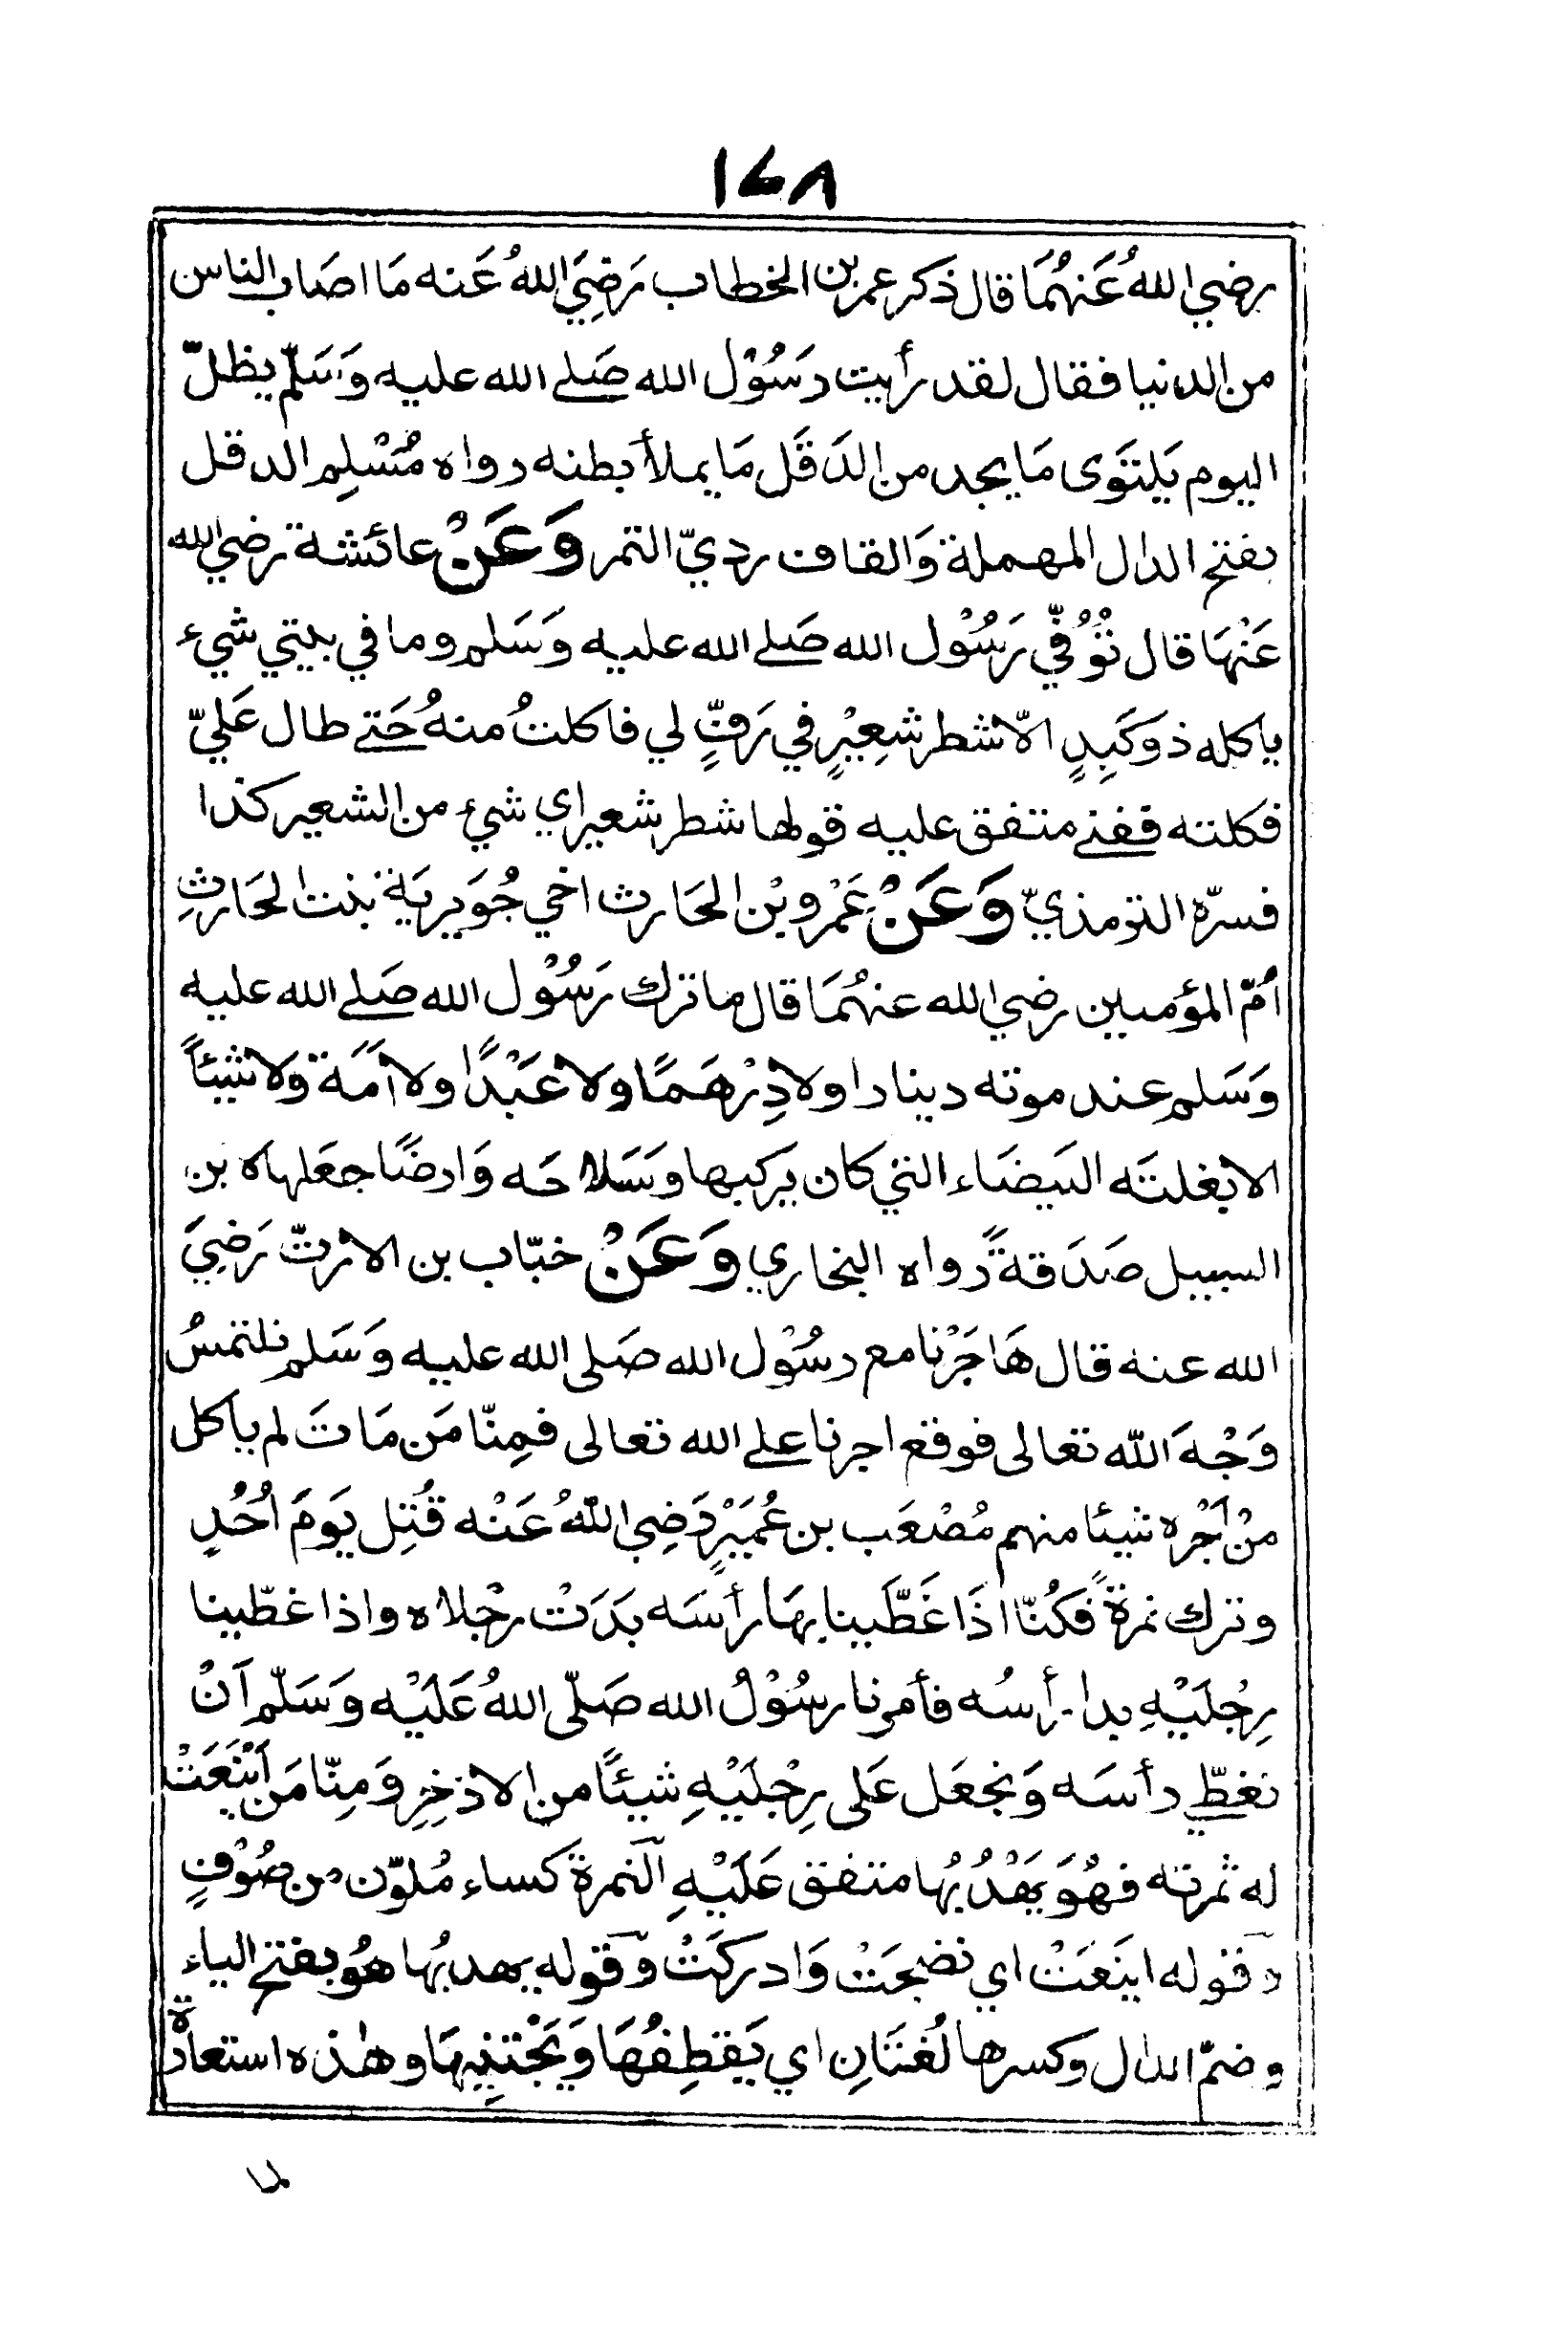 ١٤٨
رضي اللهُ عَنهُمَا قال ذكر عمر بن الخطاب رَضِيَ اللهُ عَنه مَا اصَاب الناس
من الدنيا فقال لقد رأيت رسُوْل الله صَلى الله عليه وَسَلّم يظلّ
اليوم يَلتَوى مَا يجد من الدَقَل مَا يملأ بطنه رواه مُسْلِم الدقل
بفتح الدال المهملة وَالقاف رديّ التمر وَعَنْ عائشة رضي الله
عَنْهَا قال تُوُفّي رَسُوْل الله صَلى الله عليه وَسَلم وما في بيتي شيء
ياكله ذو كَبِدٍ الّا شطر شعِيْرٍ في رَفٍّ لي فاكلتُ منهُ حَتى طال عَليّ
فكلته ففنى متفق عليه قولها شطر شعير اي شيء من الشعير كذا
فسرّه الترمذيّ وَعَنْ عَمْرو بْن الحَارث اخي جُوَيرية بنت الحَارثِ
أمّ المؤمنين رضي الله عنهُمَا قال ما ترك رَسُوْل الله صَلى الله عليه
وَسَلم عند موته دينارا ولا دِرْهَمًا ولا عَبْدًا ولا أَمَة ولا شيئاً
الا بغلتَه البَيضَاء التي كان يركبها وَسَلاحَه وَارضًا جعَلهاه بن
السبيل صَدَقةً رواه البخاري وَعَنْ خبّاب بن الارتّ رَضِيَ
الله عنه قال هَاجَرْنا مع رسُوْل الله صَلى الله عليه وَسَلم نلتمسُ
وَجْهَ اللّٰه تعالى فوقع اجرنا على الله تعالى فمِنّا مَن مَاتَ لم ياكل
منْ أجْره شيئا منهم مُصْعَب بن عُمَيْرٍ رَضِيَ اللّٰهُ عَنْه قُتِل يَومَ اُحُدٍ
وترك نمرةً فكُنّا اذَا غَطّيْنا بهَا رأسَه بدَتْ رجْلاه واذا غطّينا
رِجْلَيْهِ بدا رأسُه فأمرنا رسُوْلُ الله صَلّى اللهُ عَلَيْه وَسَلّم اَنْ
نغطّي رأسَه وَنجْعَل عَلى رِجْلَيْهِ شيئًا من الاذخِرِ وَمِنّا مَن اَيْنَعَتْ
له ثمرته فهُوَ يَهْدُبُها متفق عَلَيْهِ اَلنمرة كساء مُلوّن من صُوْفٍ
وَقوله اينَعَتْ اي نضجَتْ وَادركَتْ وَقوله يهدبُها هُو بفتح الياء
وضمّ الدال وكسرها لُغتَانِ اي يَقطِفُهَا وَيَجْتَنِيهَا وهٰذه استعارة